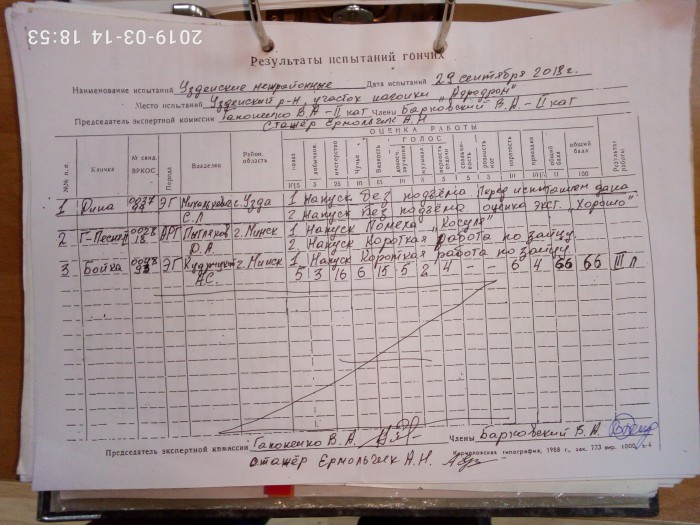 2019-03-14 18:53
Результаты испытаний гончих
Наименование испытаний Узденские межрайонные Дата испытаний 29 сентября 2018 г.
Место испытаний Узденский р-н, участок нагонки „Аэродром"
Председатель экспертной комиссии Гапоненко В.А - II кат Члены Барковский В.А - II кат
Стажёр Ермольчик А.Н
ОЦЕНКА РАБОТЫ
ГОЛОС
№№ п. п. Кличка № свид. ВРКОС Порода Владелец Район, область полаз добычлив. мастерство Чутье Вязкость парат. позывист. ровность нарыск общий балл общий балл Результат работы
3 25 5 5 10 100
1 Дина 0037 ЭГ г. Узда 1 Напуск Без подъёма Перед испытанием дана
С.Л 2 Напуск Без подъёма оценка экст. „Хорошо"
2 Г-Песня 0028 18 АРГ г. Минск 1 Напуск Помеха „Косуля"
О.А. 2. Напуск Короткая работа по зайцу.
3 Бойка 0048 ЭГ г. Минск 1 Напуск Короткая работа по зайцу.
А.С. 5 3 16 6 15 5 2 4 - - 6 4 66 66 III п
Председатель экспертной комиссии Гапоненко В.А Члены Барковский В.А.
Стажёр Ермольчик А.Н.
типография, 1988 г., зак. 773 тир. 1000